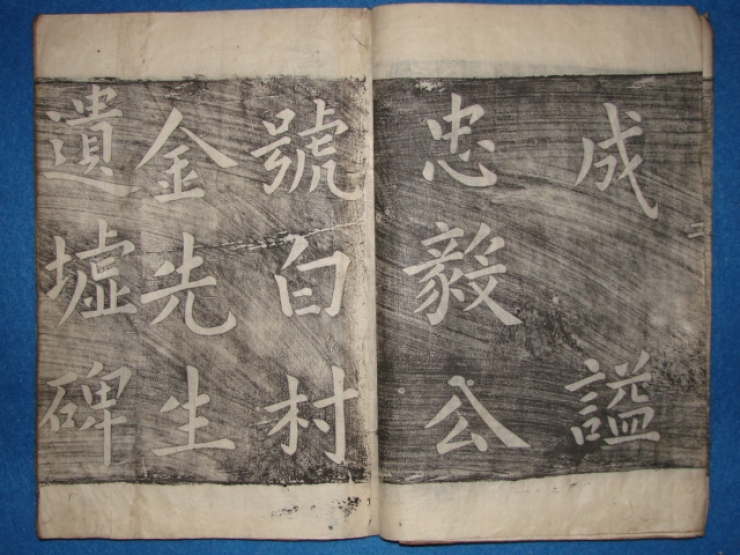 成 謚
忠毅公
號白村
金先生
遺墟碑
二